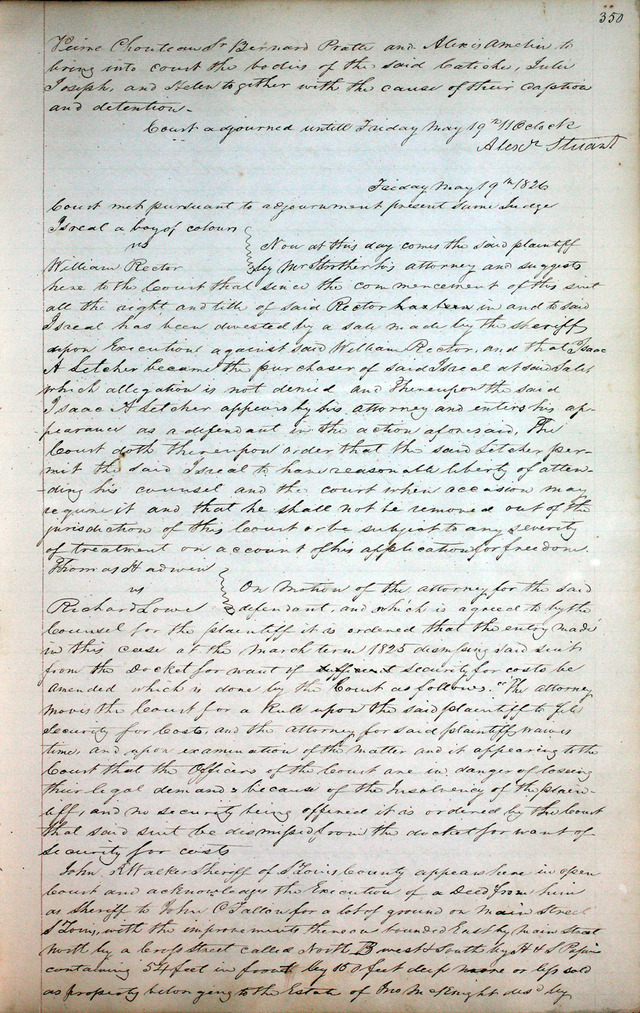 350
Pierre Chouteau Sr Bernard Pratte and Alexis Amelin to
bring into court the bodies of the said Catiche, Julie
Joseph, and Helen together with the cause of their caption
and detention.
Court adjourned untill Friday May 19th 11 Oclock
Alexr Stuart
Friday May 19th 1826
Court met pursuant to adjournment present same Judge
Isreal a boy of colour
vs
Now at this day comes the said plaintiff
William Rector
by Mr Strother his attorney and suggests
here to the Court that since the commencement of this suit
all the right and title of said Rector has been in and to said
Isreal has been divested by a sale made by the sheriff
upon Execution against said William Rector, and that Isaac
A Letcher became the purchaser of said Isreal at said sale
which allegation is not denied and Thereupon the said
Isaac A Letcher appears by his attorney and enters his ap-
pearance as a defendant in the action aforesaid, The
Court doth thereupon order that the said Letcher per-
mit the said Isreal to have reasonable liberty of atten-
-ding his counsel and the court when occasion may
require it and that he shall not be removed out of the
jurisdiction of this Court or be subject to any severity
of treatment on account of his application for freedom.
Thomas Hadwen
vs
On Motion of the attorney for the said
Richard Lowe
defendant, and which is agreed to by the
Counsel for the plaintiff it is ordered that the entry made
in this case at the March term 1825 dismissing said suit
from the Docket for want of sufficient security for costs be
amended which is done by the Court as follows. "The attorney
moves the Court for a Rule upon the said plaintiff to file
security for Costs, and the attorney for said plaintiff waives
time, and upon examination of the matter and it appearing to the
Court that the Officers of the Court are in danger of loosing
their legal demands because of the insolvency of the plain-
tiff, and no security being offered it is ordered by the Court
that said suit be dismissed from the docket for want of
security for costs
John K Walker Sheriff of St Louis County appears here in open
Court and acknowledges the Execution of a Deed from him
as Sheriff to John C Dalton for a lot of ground on Main Street
St Louis, with the improvements thereon bounded East by Main Street
North by a Cross Street called North B west & South by H & S
containing 54 feet in front by 150 feet deep more or less sold
as property belonging to the Estate of Jno McKnight decd by